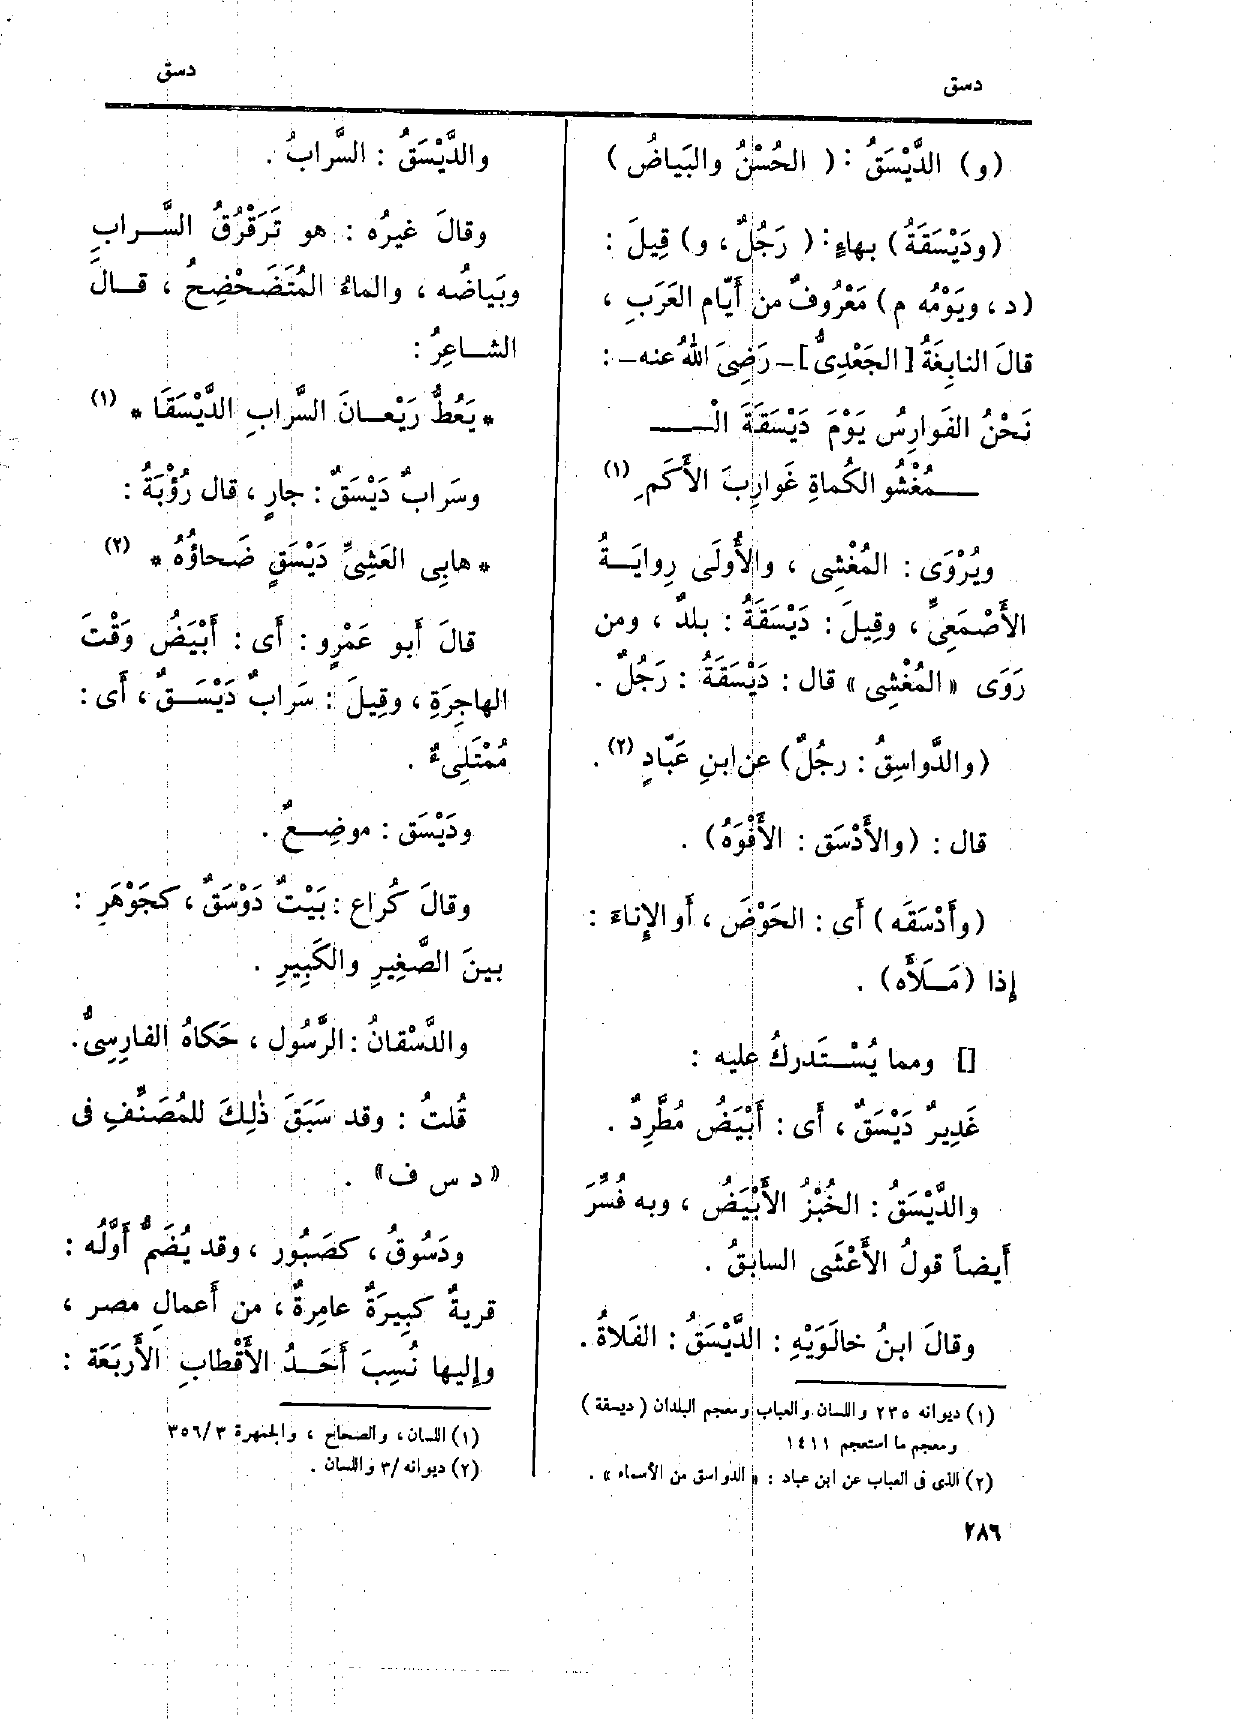 دسق
دسق
(و) الدَّيْسَقُ : ( الحُسْنُ والبَياضُ )
(ودَيْسَقَةُ) بهاءٍ : ( رَجُلٌ ، و) قِيلَ :
(د ، ويَوْمُه م) مَعْرُوفٌ من أَيّام العَرَبِ ،
قالَ النابِغَةُ [الجَعْدِىُّ] – رَضِىَ اللهُ عنه – :
نَحْنُ الفَوارِسُ يَوْمَ دَيْسَقَةَ الْـ
ـمُغْشُو الكُماةِ غَوارِبَ الأَكَمِ (١)
ويُرْوَى : المُغْشِى ، والأُولَى رِوايَـةُ
الأَصْمَعِىِّ ، وقِيلَ : دَيْسَقَةُ : بلدٌ ، ومن
رَوَى «المُغْشِى» قال : دَيْسَقَةُ : رَجُلٌ .
(والدَّواسِقُ : رجُلٌ) عن ابنِ عَبّادٍ (٢) .
قال : (والأَدْسَق : الأَفْوَهُ) .
(وأَدْسَقَه) أَى : الحَوْضَ ، أَو الإِناءَ :
إِذا (مَـلَأَه) .
[] ومما يُسْـتَدركُ عليه :
غَدِيرٌ دَيْسَقٌ ، أَى : أَبْيَضُ مُطَّرِدٌ .
والدَّيْسَقُ : الخُبْزُ الأَبْيَضُ ، وبه فُسِّرَ
أَيضاً قولُ الأَعْشَى السابقُ .
وقالَ ابنُ خالَوَيْهِ : الدَّيْسَقُ : الفَلاةُ .
(١) ديوانه ٢٣٥ واللسان والعباب ومعجم البلدان ( ديسقة )
ومعجم ما استعجم ١٤١١
(٢) الذى فى العباب عن ابن عباد : « الدواسق من الأسماء » .
والدَّيْسَقُ : السَّرابُ .
وقالَ غيرُه : هو تَرَقْرُقُ السَّـرابِ
وبَياضُه ، والماءُ المُتَضَحْضِحُ ، قـالَ
الشـاعِرُ :
* يَعُطُّ رَيْعـانَ السَّرابِ الدَّيْسَقَا * (١)
وسَرابٌ دَيْسَقٌ : جارٍ ، قال رُؤْبَةُ :
* هابِى العَشِىِّ دَيْسَقٍ ضَحاؤُهُ * (٢)
قالَ أَبو عَمْرٍو : أَى : أَبْيَضُ وَقْتَ
الهاجِرَةِ ، وقِيلَ : سَرابٌ دَيْسَـقٌ ، أَى :
مُمْتَلِىءٌ .
ودَيْسَق : موضِـعٌ .
وقالَ كُراع : بَيْتٌ دَوْسَقٌ ، كجَوْهَرِ :
بينَ الصَّغِيرِ والكَبِيرِ .
والدَّسْقانُ : الرَّسُول ، حَكاهُ الفارِسِىُّ .
قُلتُ : وقد سَبَقَ ذٰلِكَ للمُصَنِّفِ فى
«د س ف» .
ودَسُوقُ ، كصَبُور ، وقد يُضَمُّ أَوَّلُه :
قريةٌ كَبِيرَةٌ عامِرةٌ ، من أَعمالِ مصر ،
وإِليها نُسِبَ أَحَـدُ الأَقْطابِ الأَربَعَة :
(١) اللسان ، والصحاح ، والجمهرة ٣/ ٣٥٦
(٢) ديوانه /٣ واللسان .
٢٨٦